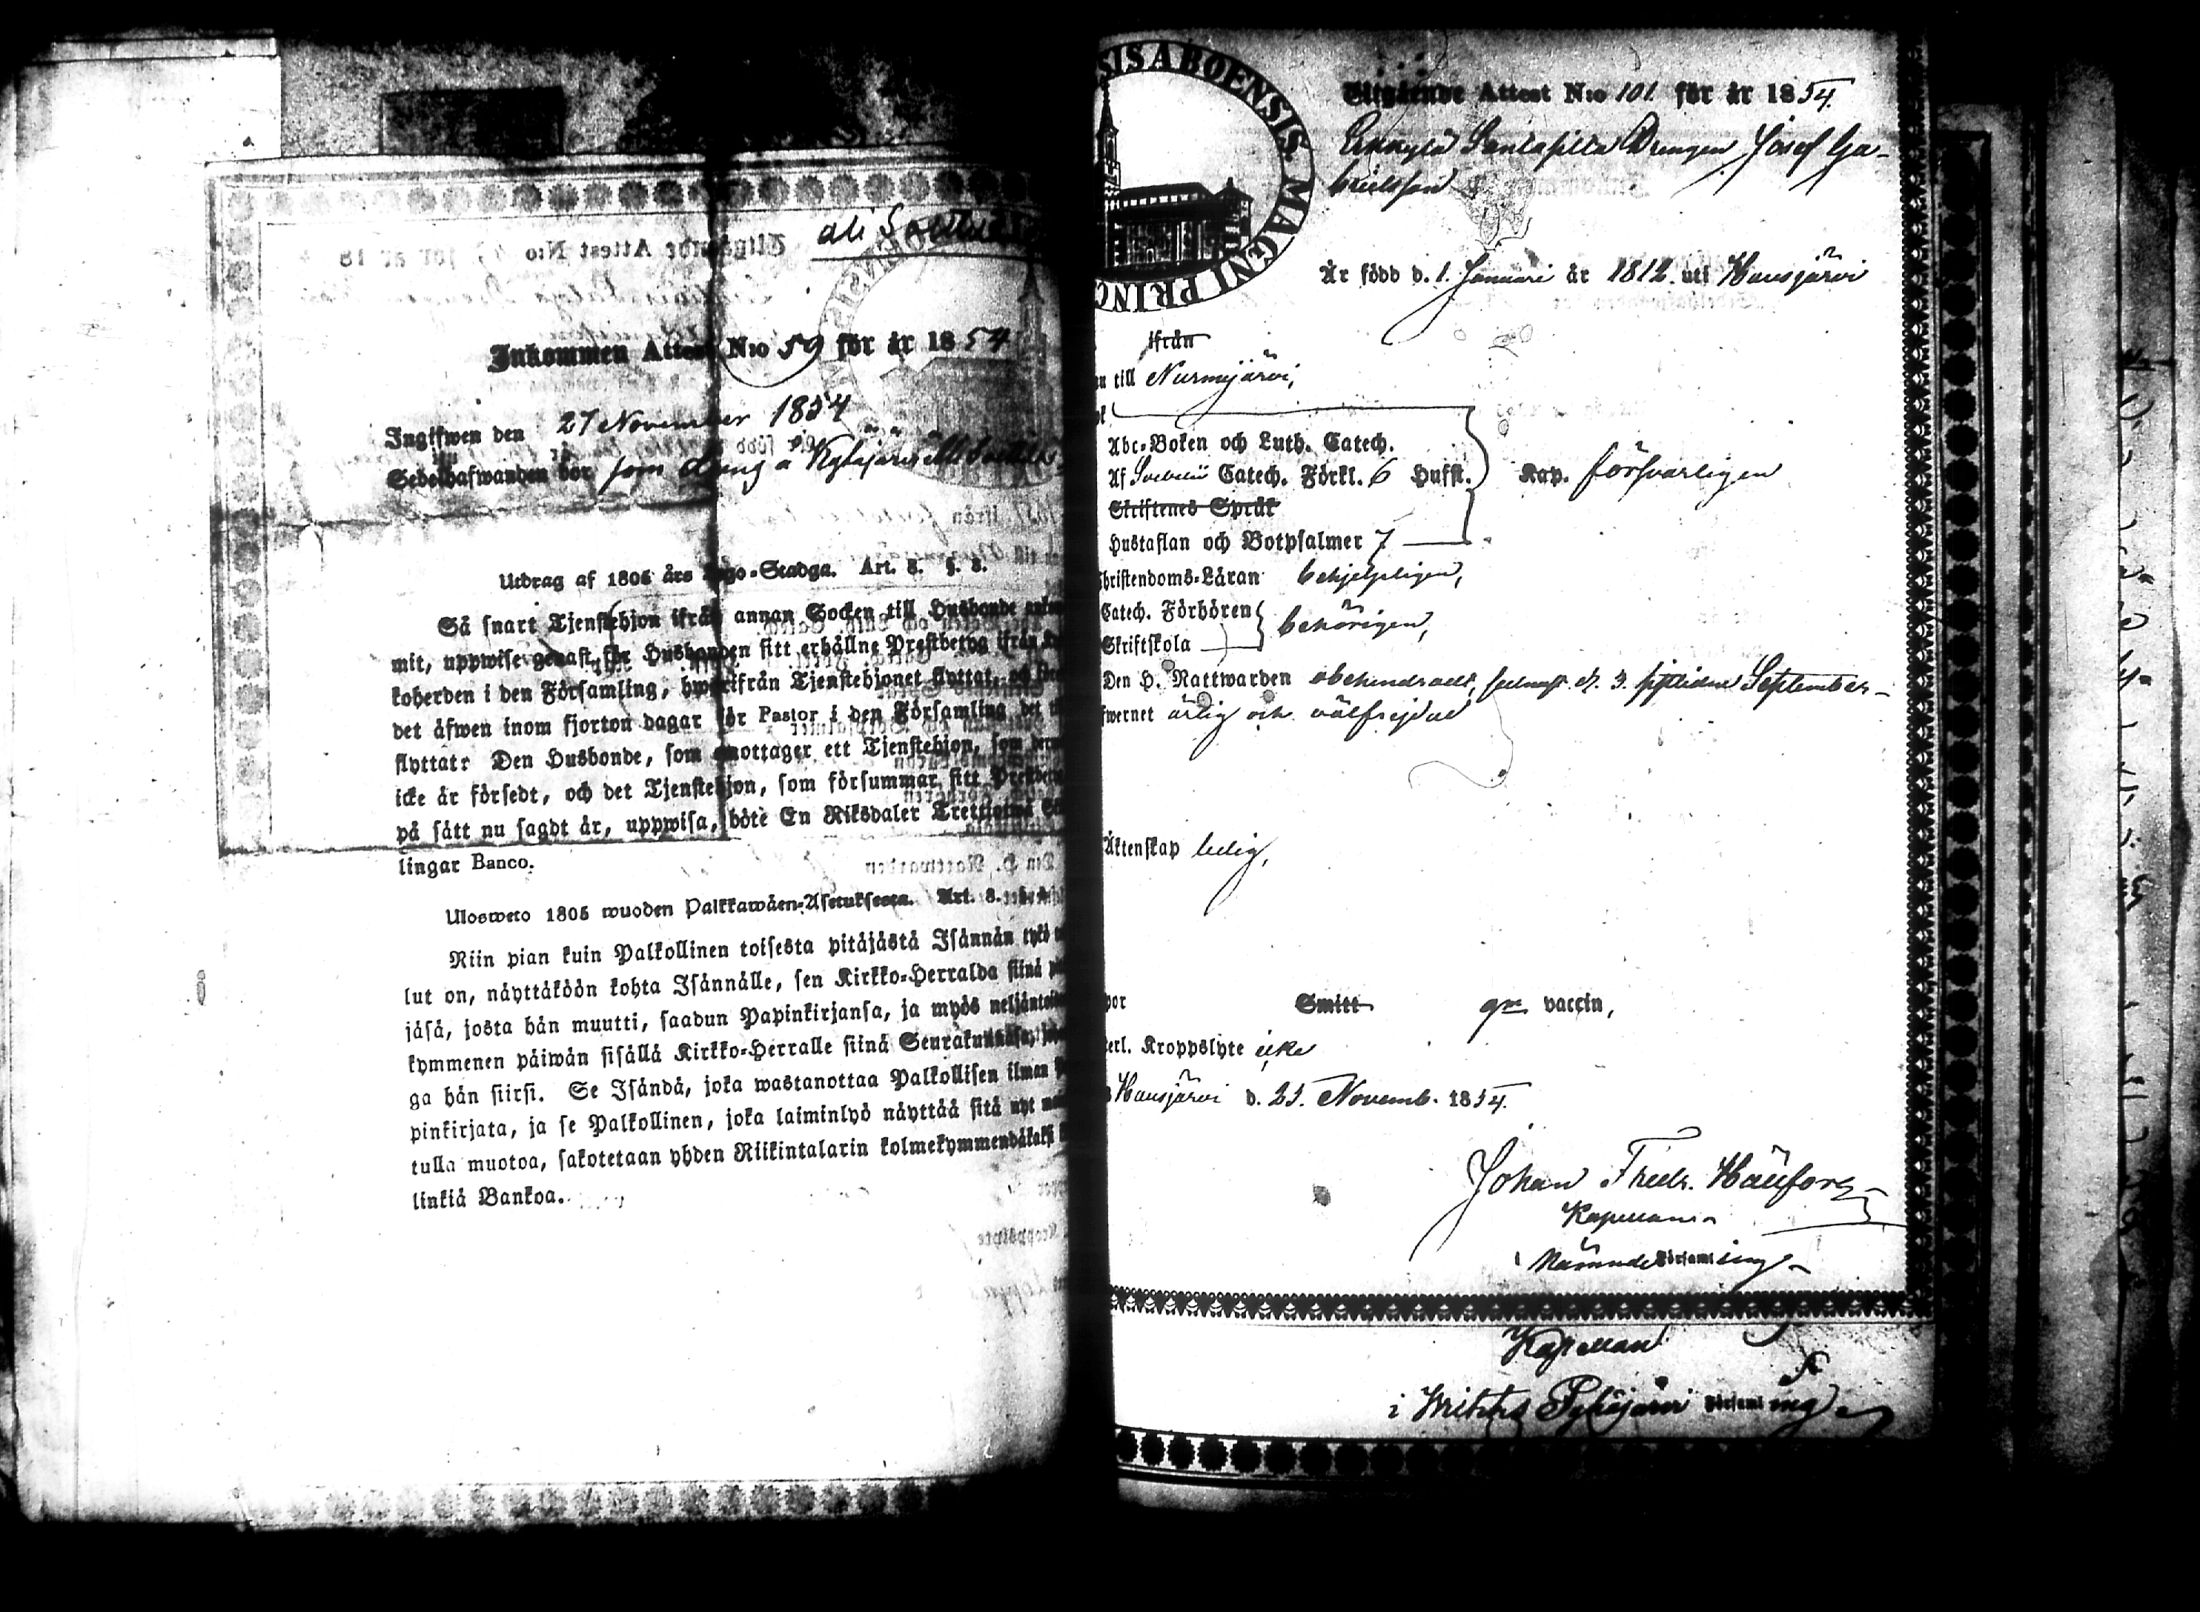 Inkommen Attest N:o 59 för år 1854
Ingifwen den 27 November 1854
Sedelhafwanden bor som dräng å
Utdrag af 1805 års Lego-Stadga. Art. 8. §. 8.
Så snart Tjenstehjon ifrån annan Socken till Husbonde
mit, uppwise genast för Husbonden sitt erhållne Prestbetyg ifrån
koherden i den Församling, hwarifrån Tjenstehjonet flyttat, och
det åfwen inom fjorton dagar för Pastor i den Församling det
flyttat: Den Husbonde, som emottager ett Tjenstehjon, som
icke är försedt, och det Tjenstehjon, som försummar sitt
på sått nu sagdt år, uppwisa, böte En Riksdaler Trettiotwå
lingar Banco.
Ulosweto 1805 wuoden Palkkawäen-Asetuksesta. Art. 8.
Niin pian kuin Palkollinen toisesta pitäjästä Isännän työ
lut on, näyttäköön kohta Isännälle, sen Kirkko-Herralda siinä
jäsä, josta hän muutti, saadun Papinkirjansa, ja myös
kymmenen päiwän sisällä Kirkko-Herralle siinä Seurakunnasa,
ga hän siirsi. Se Isändä, joka wastanottaa Palkollisen ilman
pinkirjata, ja se Palkollinen, joka laiminlyö näyttää sitä nyt
tulla muotoa, sakotetaan yhden Riikintalarin kolmekymmendäkaksi
linkiä Bankoa.
SIS ABOENSIS. MAGNI PRINC
Utgående Attest N:o 101. för år 1854.
Drengen Josef Ga-
brielsson
Är född d. 1. Januari år 1812. uti Hausjärvi
ifrån
till Nurmijärvi,
Abc-Boken och Luth. Catech.
Af Svebelii Catech. Förkl. 6 Hufst. Kap. försvarligen
Skriftenes Språk
Hustaflan och Botpsalmer 7
Christendoms-Läran behjelpligen,
Catech. Förhören
Skriftskola behörigen,
Den H. Nattwarden obehindradt, sednast d. 3. sistlidne September
fwernet ärlig och välfrejdad
Äktenskap ledig,
Smitt vaccin,
Kroppslyte icke
Hausjärvi d. 25. Novemb. 1854.
Johan Fredr.
Kapellan
i Nämnde Församling
Kapellan
i Pyhäjärvi Församling